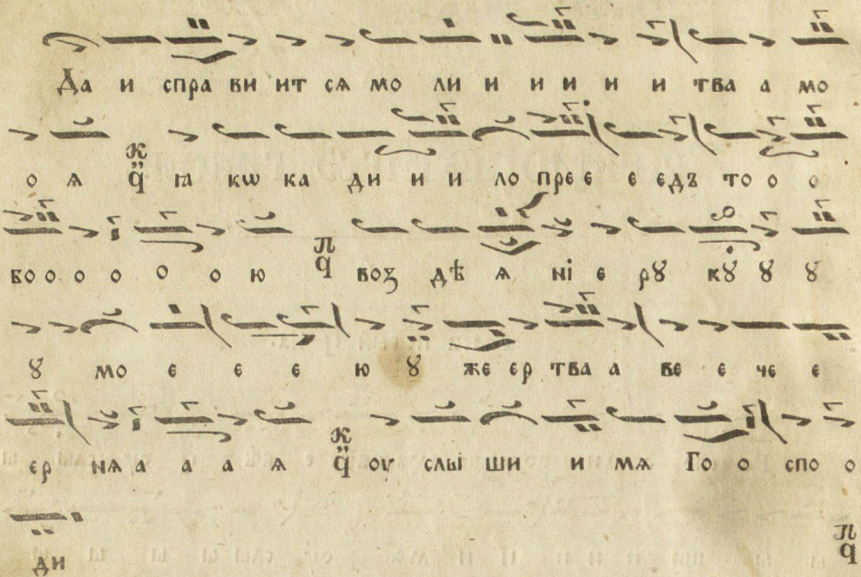 Да и спра ви ит сѧ мо ли и и и и и тва а мо
о ѧ к҃ ч꙼ ꙗ кѡ ка ди и и ло пре е е едъ то о о
бо о о о о о ю п ч воз дѣ ѧ нї е рꙋ кꙋ ꙋ ꙋ
ꙋ мо е е е ю ꙋ же ер тва а ве е че е
ер нѧ а а а ѧ к ч оу слы ши и мѧ Го о спо о
ди п ч